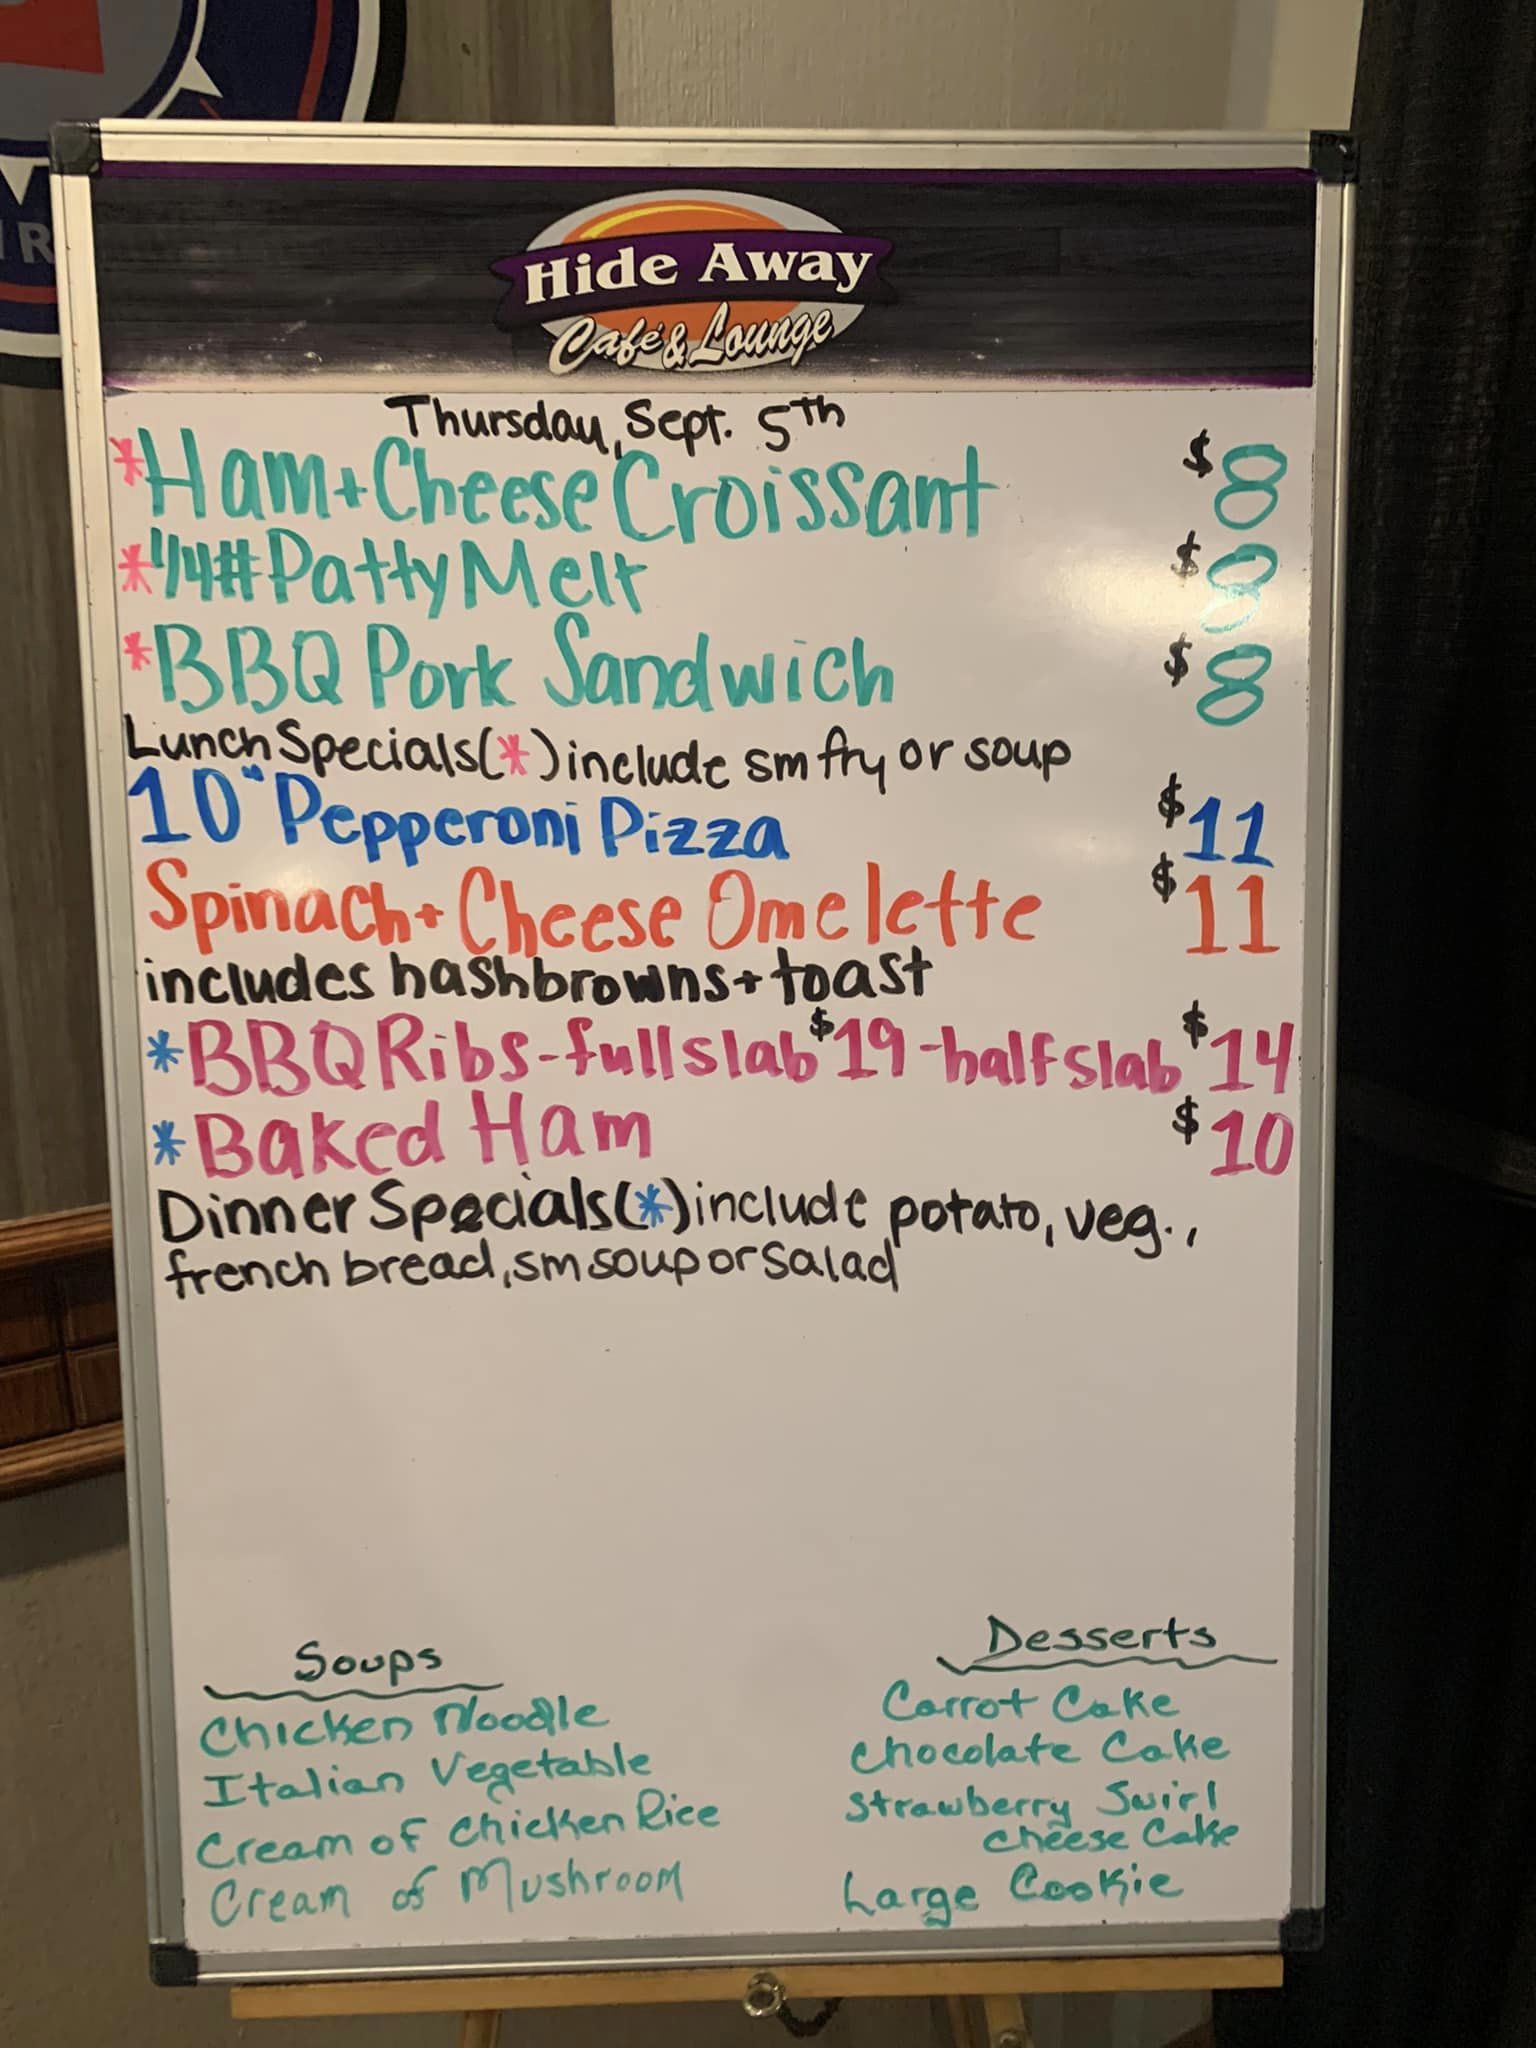 IR
Hide Away
Café & Lounge
Thursday, Sept. 5th
*Ham + Cheese Croissant $8
*1/4# Patty Melt $8
*BBQ Pork Sandwich $8
Lunch Specials (*) include sm fry or soup
10" Pepperoni Pizza $11
Spinach + Cheese Omelette $11
includes hashbrowns + toast
*BBQ Ribs - full slab $19 - half slab $14
*Baked Ham $10
Dinner Specials (*) include potato, veg.,
french bread, sm soup or salad
Soups
Chicken Noodle
Italian Vegetable
Cream of Chicken Rice
Cream of Mushroom
Desserts
Carrot Cake
Chocolate Cake
Strawberry Swirl
Cheese Cake
Large Cookie